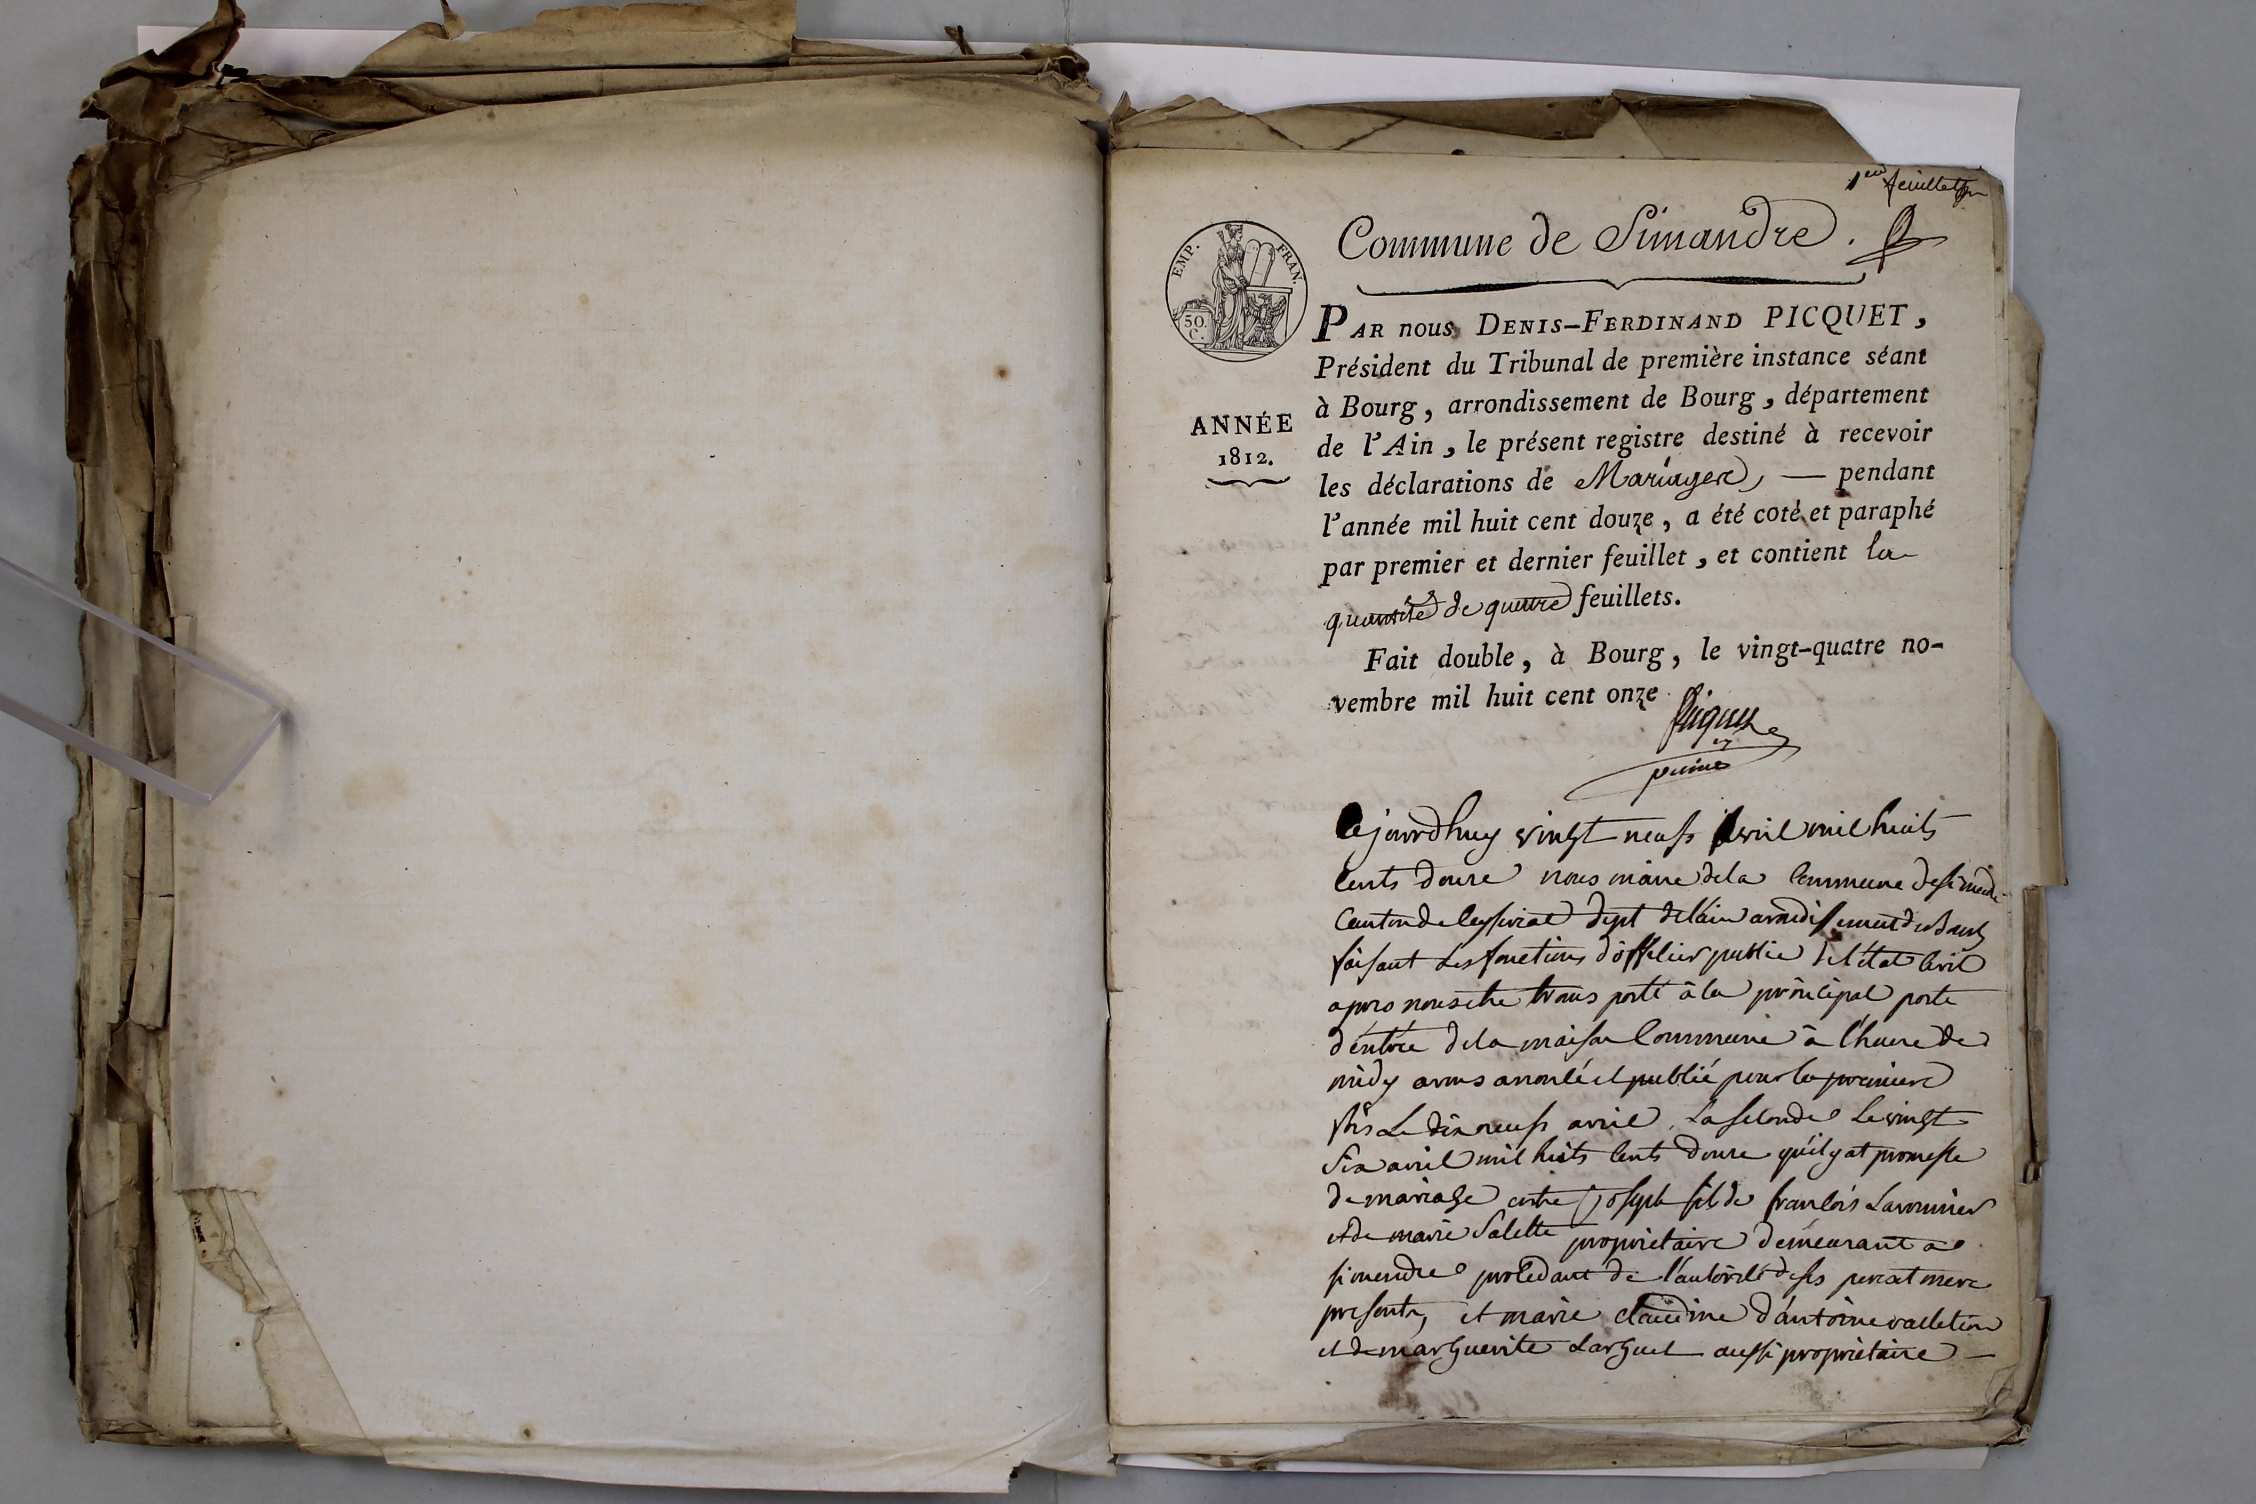 1er feuillet
Commune de Simandre.
EMP. FRAN.
50. C.
ANNÉE
1812.
PAR nous DENIS-FERDINAND PICQUET,
Président du Tribunal de première instance séant
à Bourg, arrondissement de Bourg, département
de l'Ain, le présent registre destiné à recevoir
les déclarations de Mariages, — pendant
l'année mil huit cent douze, a été coté et paraphé
par premier et dernier feuillet, et contient la
quantité de quatre feuillets.
Fait double, à Bourg, le vingt-quatre no-
vembre mil huit cent onze
Picquet
Cejourdhuy vingt neuf avril mil huits
cents douze nous maire de la Commune de simandre
Canton de Ceyseriat dept de l'ain arondissement de bourg
faisant les fonctions d'officier public de l'état Civil
apres nous etre trans porté à la principal porte
d'entrée de la maison Commune à l'heure de
midy avons anoncé et publié pour la premiere
fois Le dix neuf avril, La seconde Le vingt
Six avril mil huits Cents douze qu'il y at promesse
de mariage entre joseph fils de françois Lavonnier
et de marie Salette propriétaire demeurant a
simendre procedant de l'autorité de ses pere et mere
presents, et marie claudine d'antoine valletin
et de marguerite Larguet aussi propriétaire —